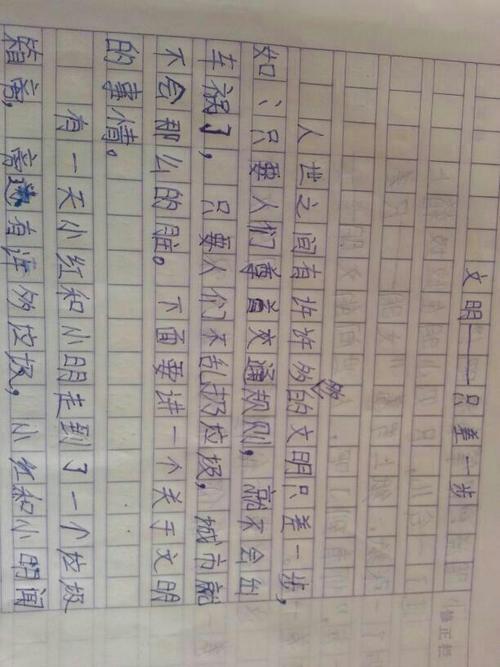 文明——只差一步
人世之间有许许多多的文明只差一步,
如:只要人们尊首交通规则,就不会出
车祸了,只要人们不乱扔垃圾,城市就
不会那么的脏。下面要讲一个关于文明
的事情。
有一天小红和小明走到了一个垃圾
箱旁,旁边有许多垃圾,小红和小明闻
修正栏